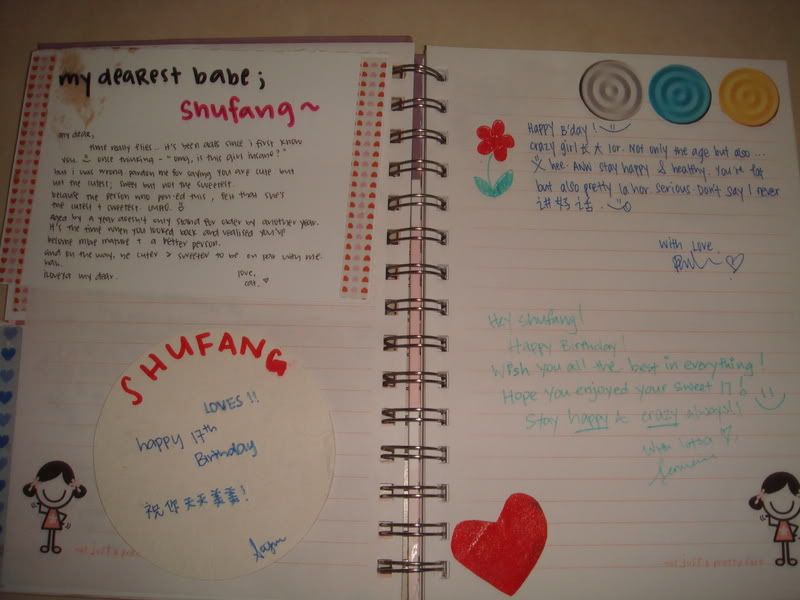 my dearest babe;
shufang~
my dear,
time really flies... it's been ages since i first know
you. once thinking - "omg, is this girl insane?"
but i was wrong. pardon me for saying you are cute but
not the cutest; sweet but not the sweetest.
because the person who pen-ed this, felt that she's
the cutest & sweetest.
aged by a year doesn't only stand for older by another year.
it's the time when you looked back and realised you've
become more mature + a better person.
and on the way, be cuter > sweeter to be on par with me.
hah.
iloveya my dear.
love,
cat.
SHUFANG
LOVES!!
happy 17th
Birthday
祝你天天美美!
Happy B'day!
crazy girl 长大 lor. Not only the age but also...
Anw stay happy & healthy. You're fat
but also pretty la hor. Serious. Don't say I never
讲好话.
With Love.
Hey Shufang!
Happy Birthday!
Wish you all the best in everything!
Hope you enjoyed your sweet 17!
Stay happy & crazy always!!
With lotsa